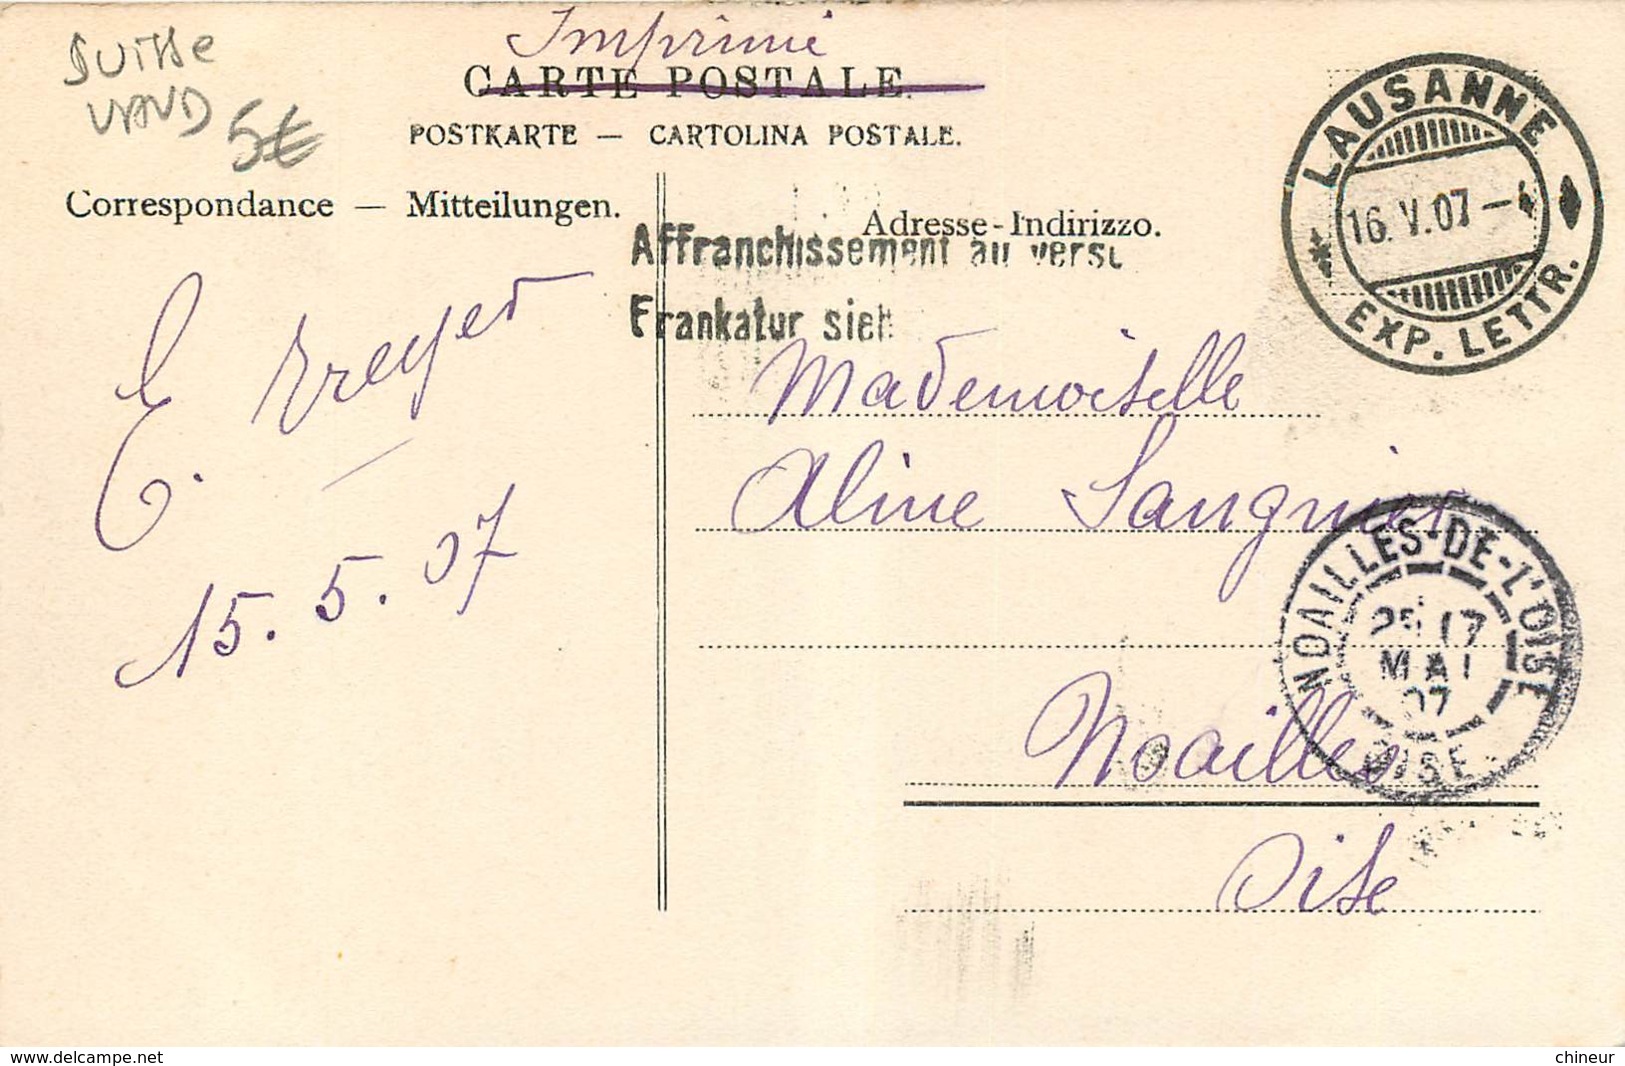 Suisse
VAUD 5€
Imprimé
CARTE POSTALE.
POSTKARTE — CARTOLINA POSTALE.
Correspondance — Mitteilungen.
Adresse-Indirizzo.
Affranchissement au verso
Frankatur sieh
LAUSANNE
16.V.07
EXP. LETTR.
E.
15.5.07
Mademoiselle
Aline Saugnier
NOAILLES-DE-L'OISE
25 17
MAI
07
OISE
Noailles
Oise
www.delcampe.net
chineur